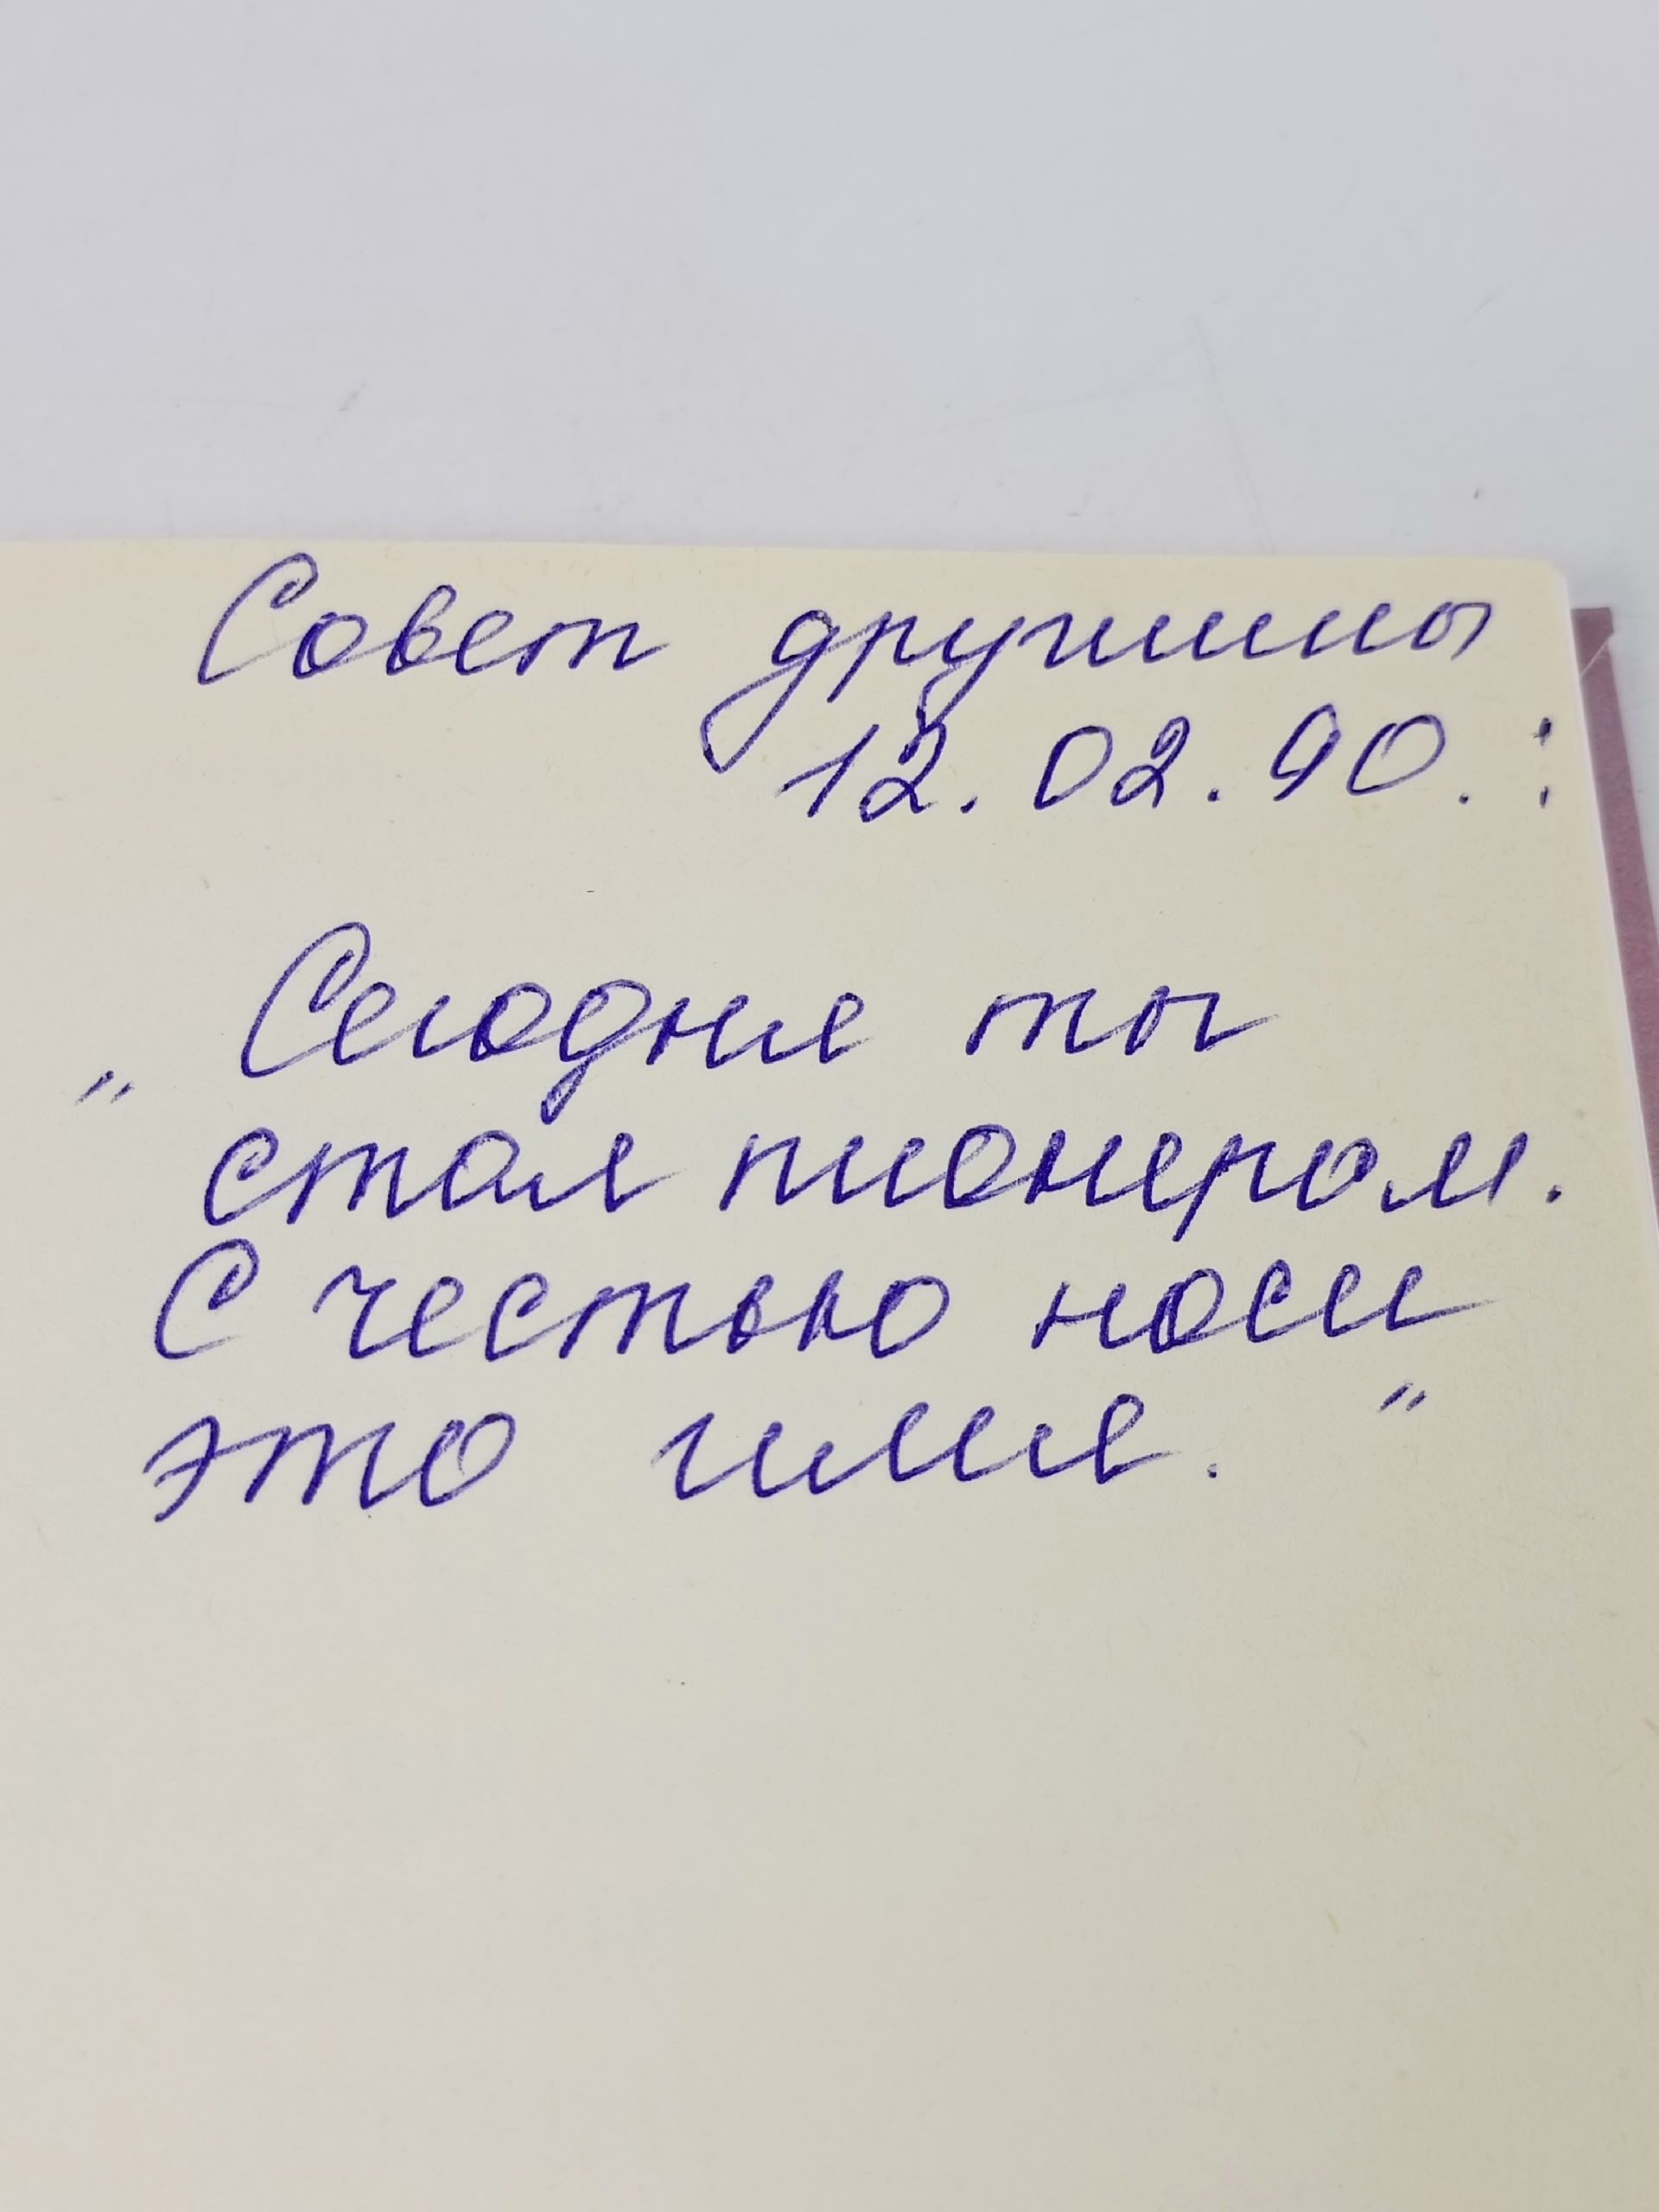 Совет дружины
12.02.90. :
„Сегодня ты
стал пионером.
С честью носи
это имя."